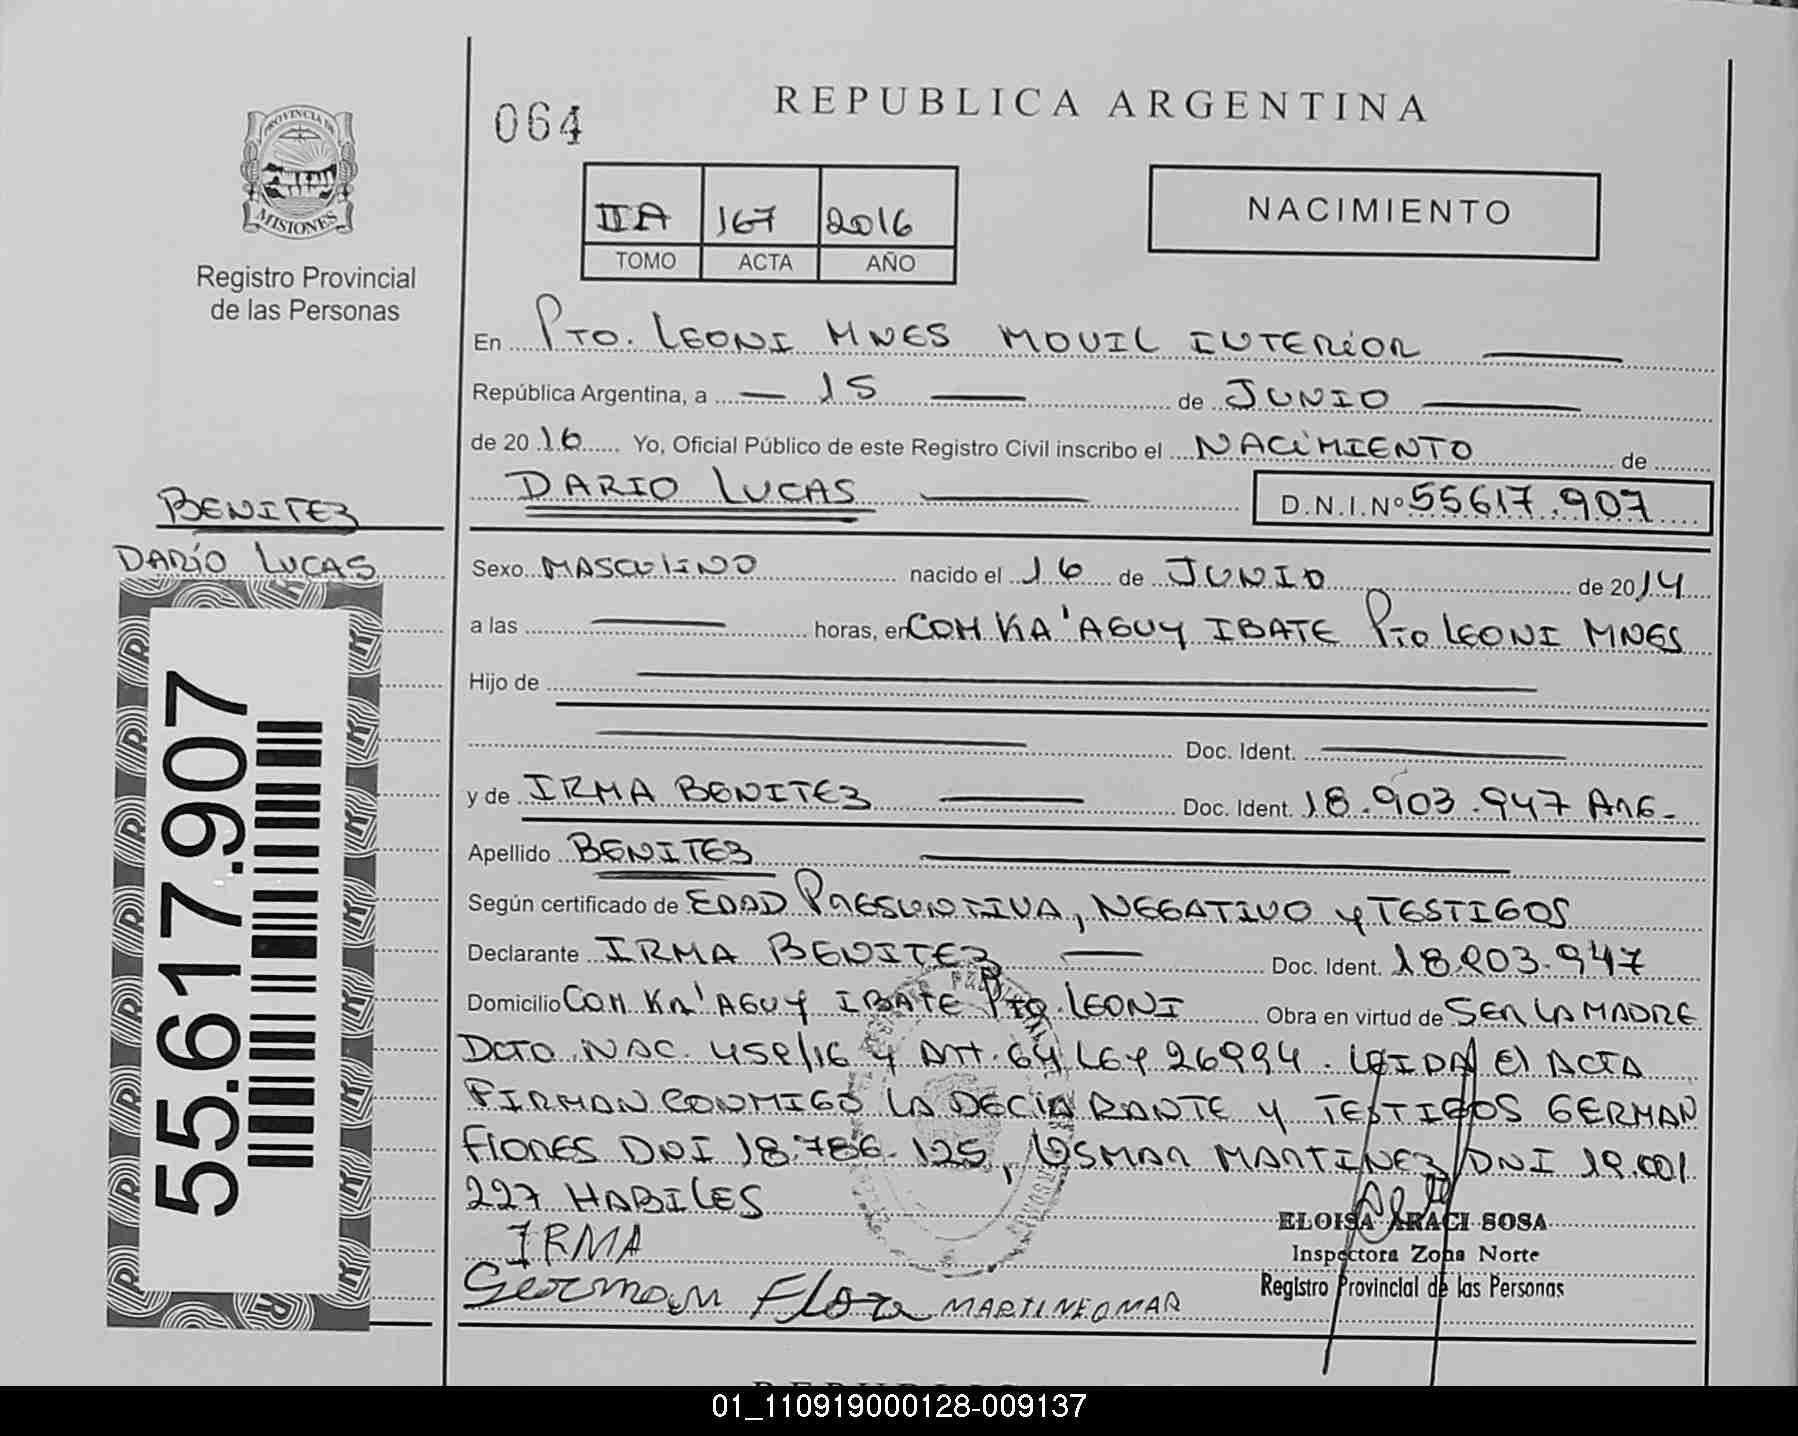 064
REPUBLICA ARGENTINA
PROVINCIA DE
MISIONES
Registro Provincial
de las Personas
IIA 167 2016
TOMO ACTA AÑO
NACIMIENTO
En Pto. LEONI MNES MOVIL INTERIOR
República Argentina, a 15 de JUNIO
de 2016 Yo, Oficial Público de este Registro Civil inscribo el NACIMIENTO de
DARIO LUCAS D.N.I.Nº 55617.907
BENITEZ
DARÍO LUCAS
55.617.907
Sexo MASCULINO nacido el 16 de JUNIO de 2014
a las horas, en COM KA'AGUY IBATE Pto LEONI MNES
Hijo de
Doc. Ident.
y de IRMA BENITEZ Doc. Ident. 18.903.947 ARG.
Apellido BENITEZ
Según certificado de EDAD PRESUNTIVA, NEGATIVO y TESTIGOS
Declarante IRMA BENITEZ Doc. Ident. 18.903.947
Domicilio COM KA'AGUY IBATE Pto. LEONI Obra en virtud de SER LA MADRE
DCTO NAC. /16 Y Art. 64 LEY 26994. LEIDA El ACTA
FIRMAN CONMIGO LA DECLARANTE Y TESTIGOS GERMAN
FLORES DNI 18.786.125, OSMAR MARTINEZ DNI 19.001.
227 HABILES
IRMA
German Flore MARTINEOMAR
ELOISA ARACI SOSA
Inspectora Zona Norte
Registro Provincial de las Personas
01_110919000128-009137